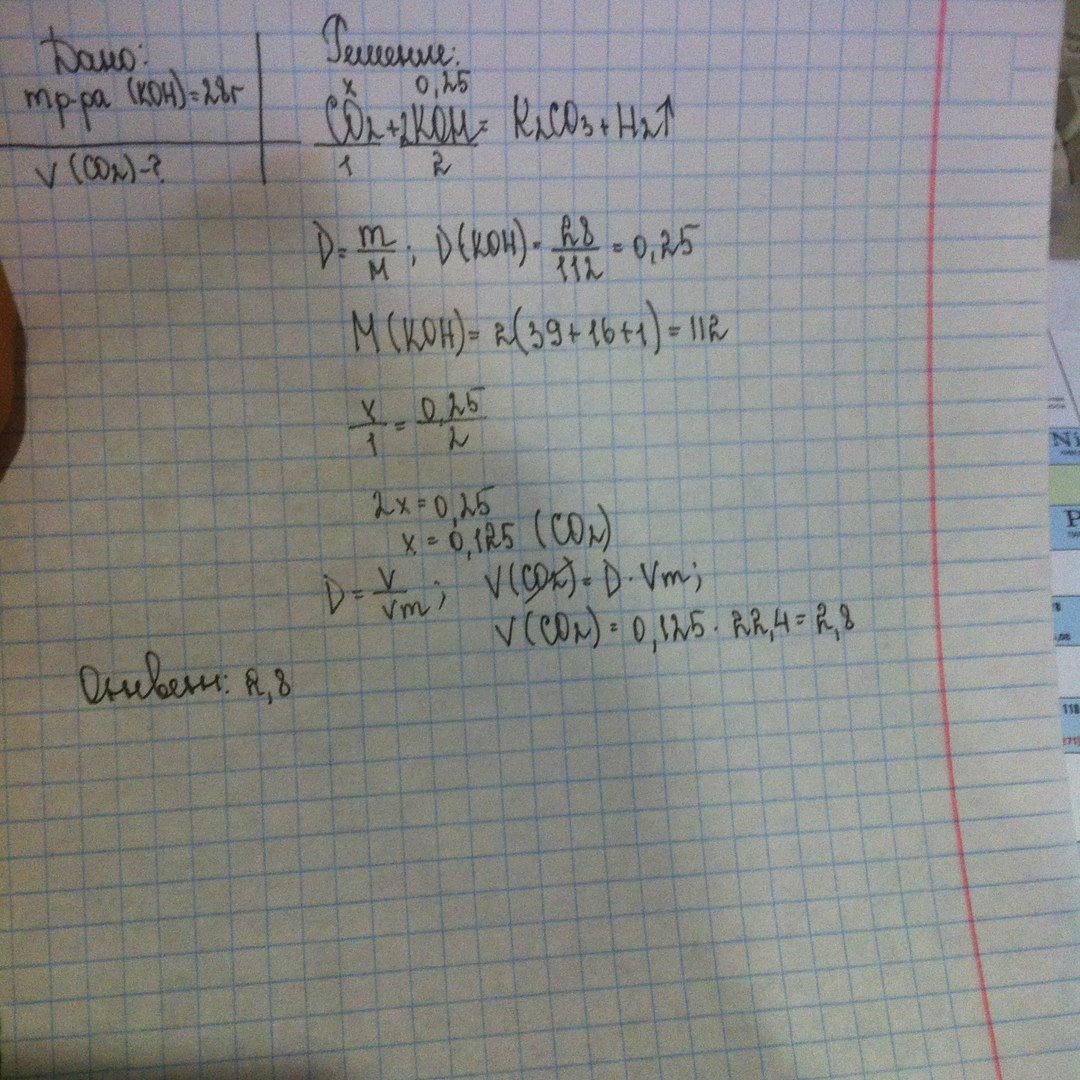 Дано:
mр-ра (KOH)=28г
V (CO2)-?
Решение:
x 0,25
CO2+2KOH= K2CO3+H2↑
1 2
D= m/M; D(KOH)= 28/112 = 0,25
M(KOH)= 2(39+16+1)=112
x/1 = 0,25/2
2x=0,25
x= 0,125 (CO2)
D= V/Vm; V(CO2)= D·Vm;
V(CO2)= 0,125·22,4=2,8
Ответ: 2,8
Ni
P
118